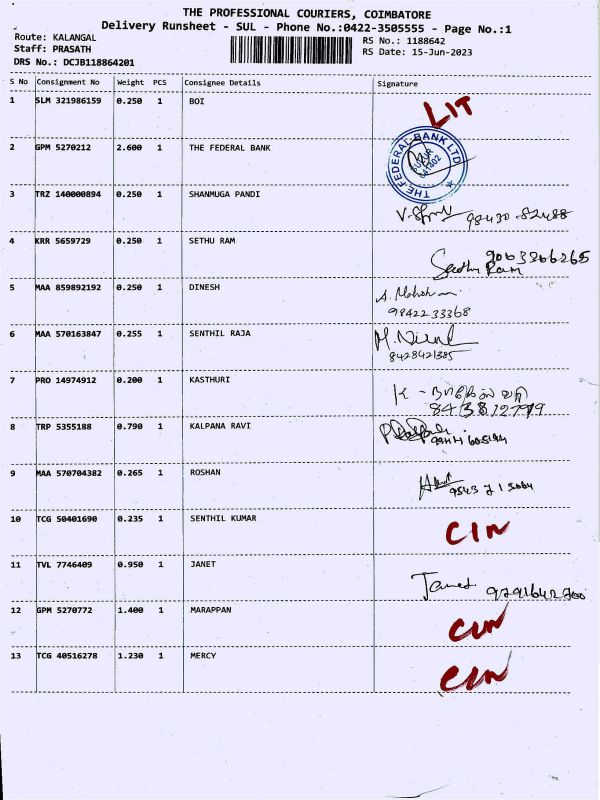 THE PROFESSIONAL COURIERS, COIMBATORE
Delivery Runsheet - SUL - Phone No.:0422-3505555 - Page No.:1
Route: KALANGAL
Staff: PRASATH
DRS No.: DCJB118864201
RS No.: 1188642
RS Date: 15-Jun-2023
S No Consignment No Weight PCS Consignee Details Signature
1 SLM 321986159 0.250 1 BOI LIT
2 GPM 5270212 2.600 1 THE FEDERAL BANK
THE FEDERAL BANK LTD
641402
3 TRZ 140000894 0.250 1 SHANMUGA PANDI
98430-82488
4 KRR 5659729 0.250 1 SETHU RAM
Sethu Ram 9003366265
5 MAA 859892192 0.250 1 DINESH
98422 33368
6 MAA 570163847 0.255 1 SENTHIL RAJA
8428421385
7 PRO 14974912 0.200 1 KASTHURI
8438127979
8 TRP 5355188 0.790 1 KALPANA RAVI
9 MAA 570704382 0.265 1 ROSHAN
10 TCG 50401690 0.235 1 SENTHIL KUMAR CIN
11 TVL 7746409 0.950 1 JANET
Janet 9791642700
12 GPM 5270772 1.400 1 MARAPPAN
13 TCG 40516278 1.230 1 MERCY